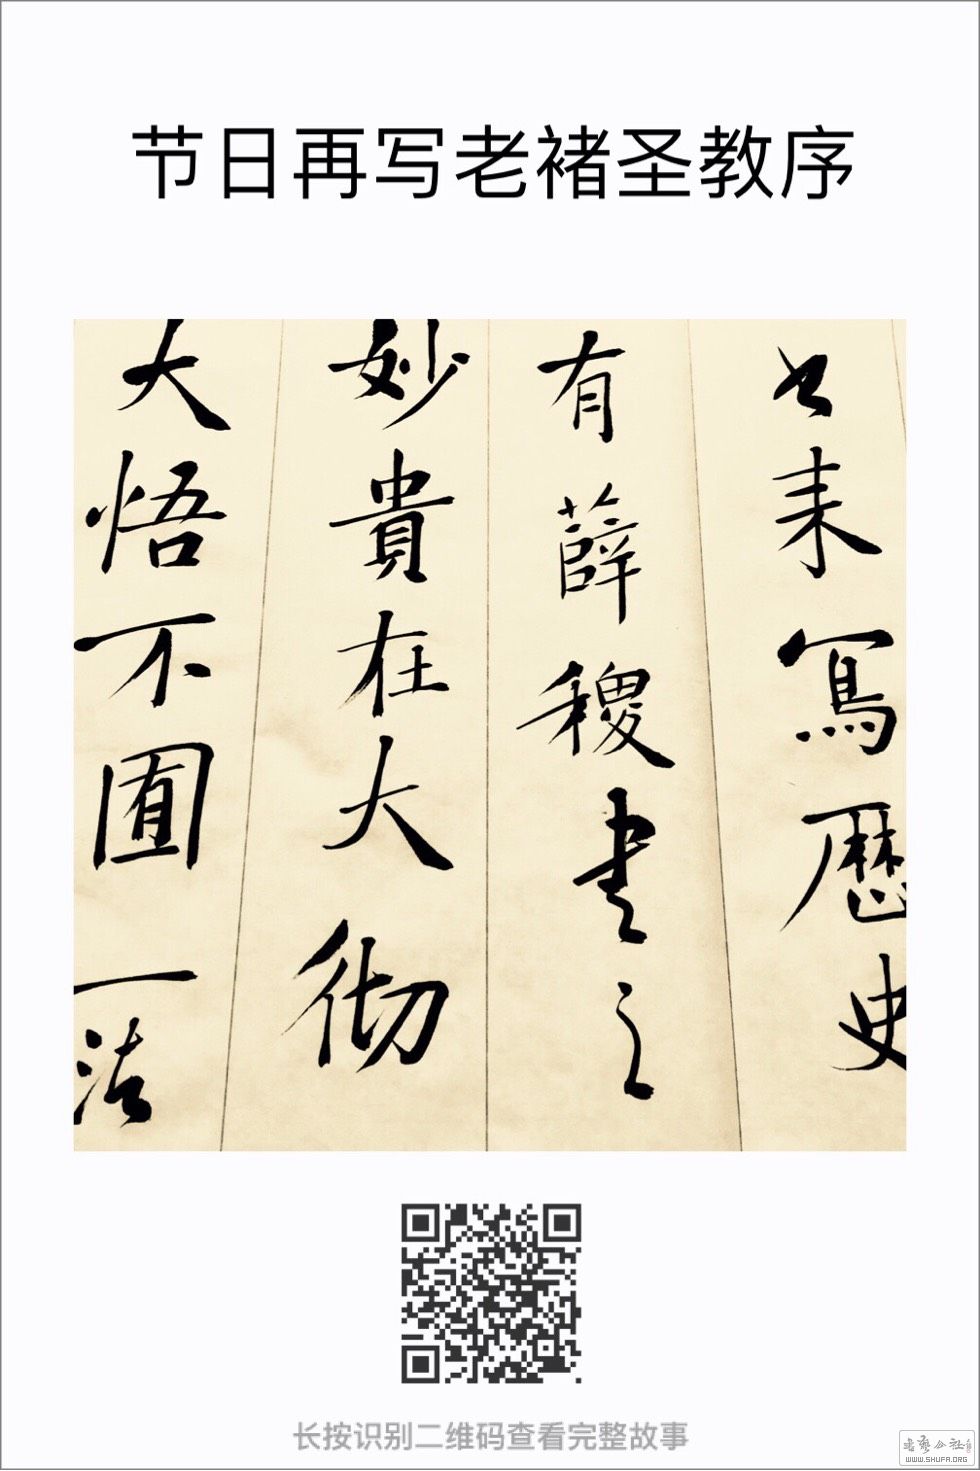 节日再写老褚圣教序
以来写歷史
有薛稷书之
妙貴在大彻
大悟不囿一法
长按识别二维码查看完整故事
书艺公社
WWW.SHUFA.ORG